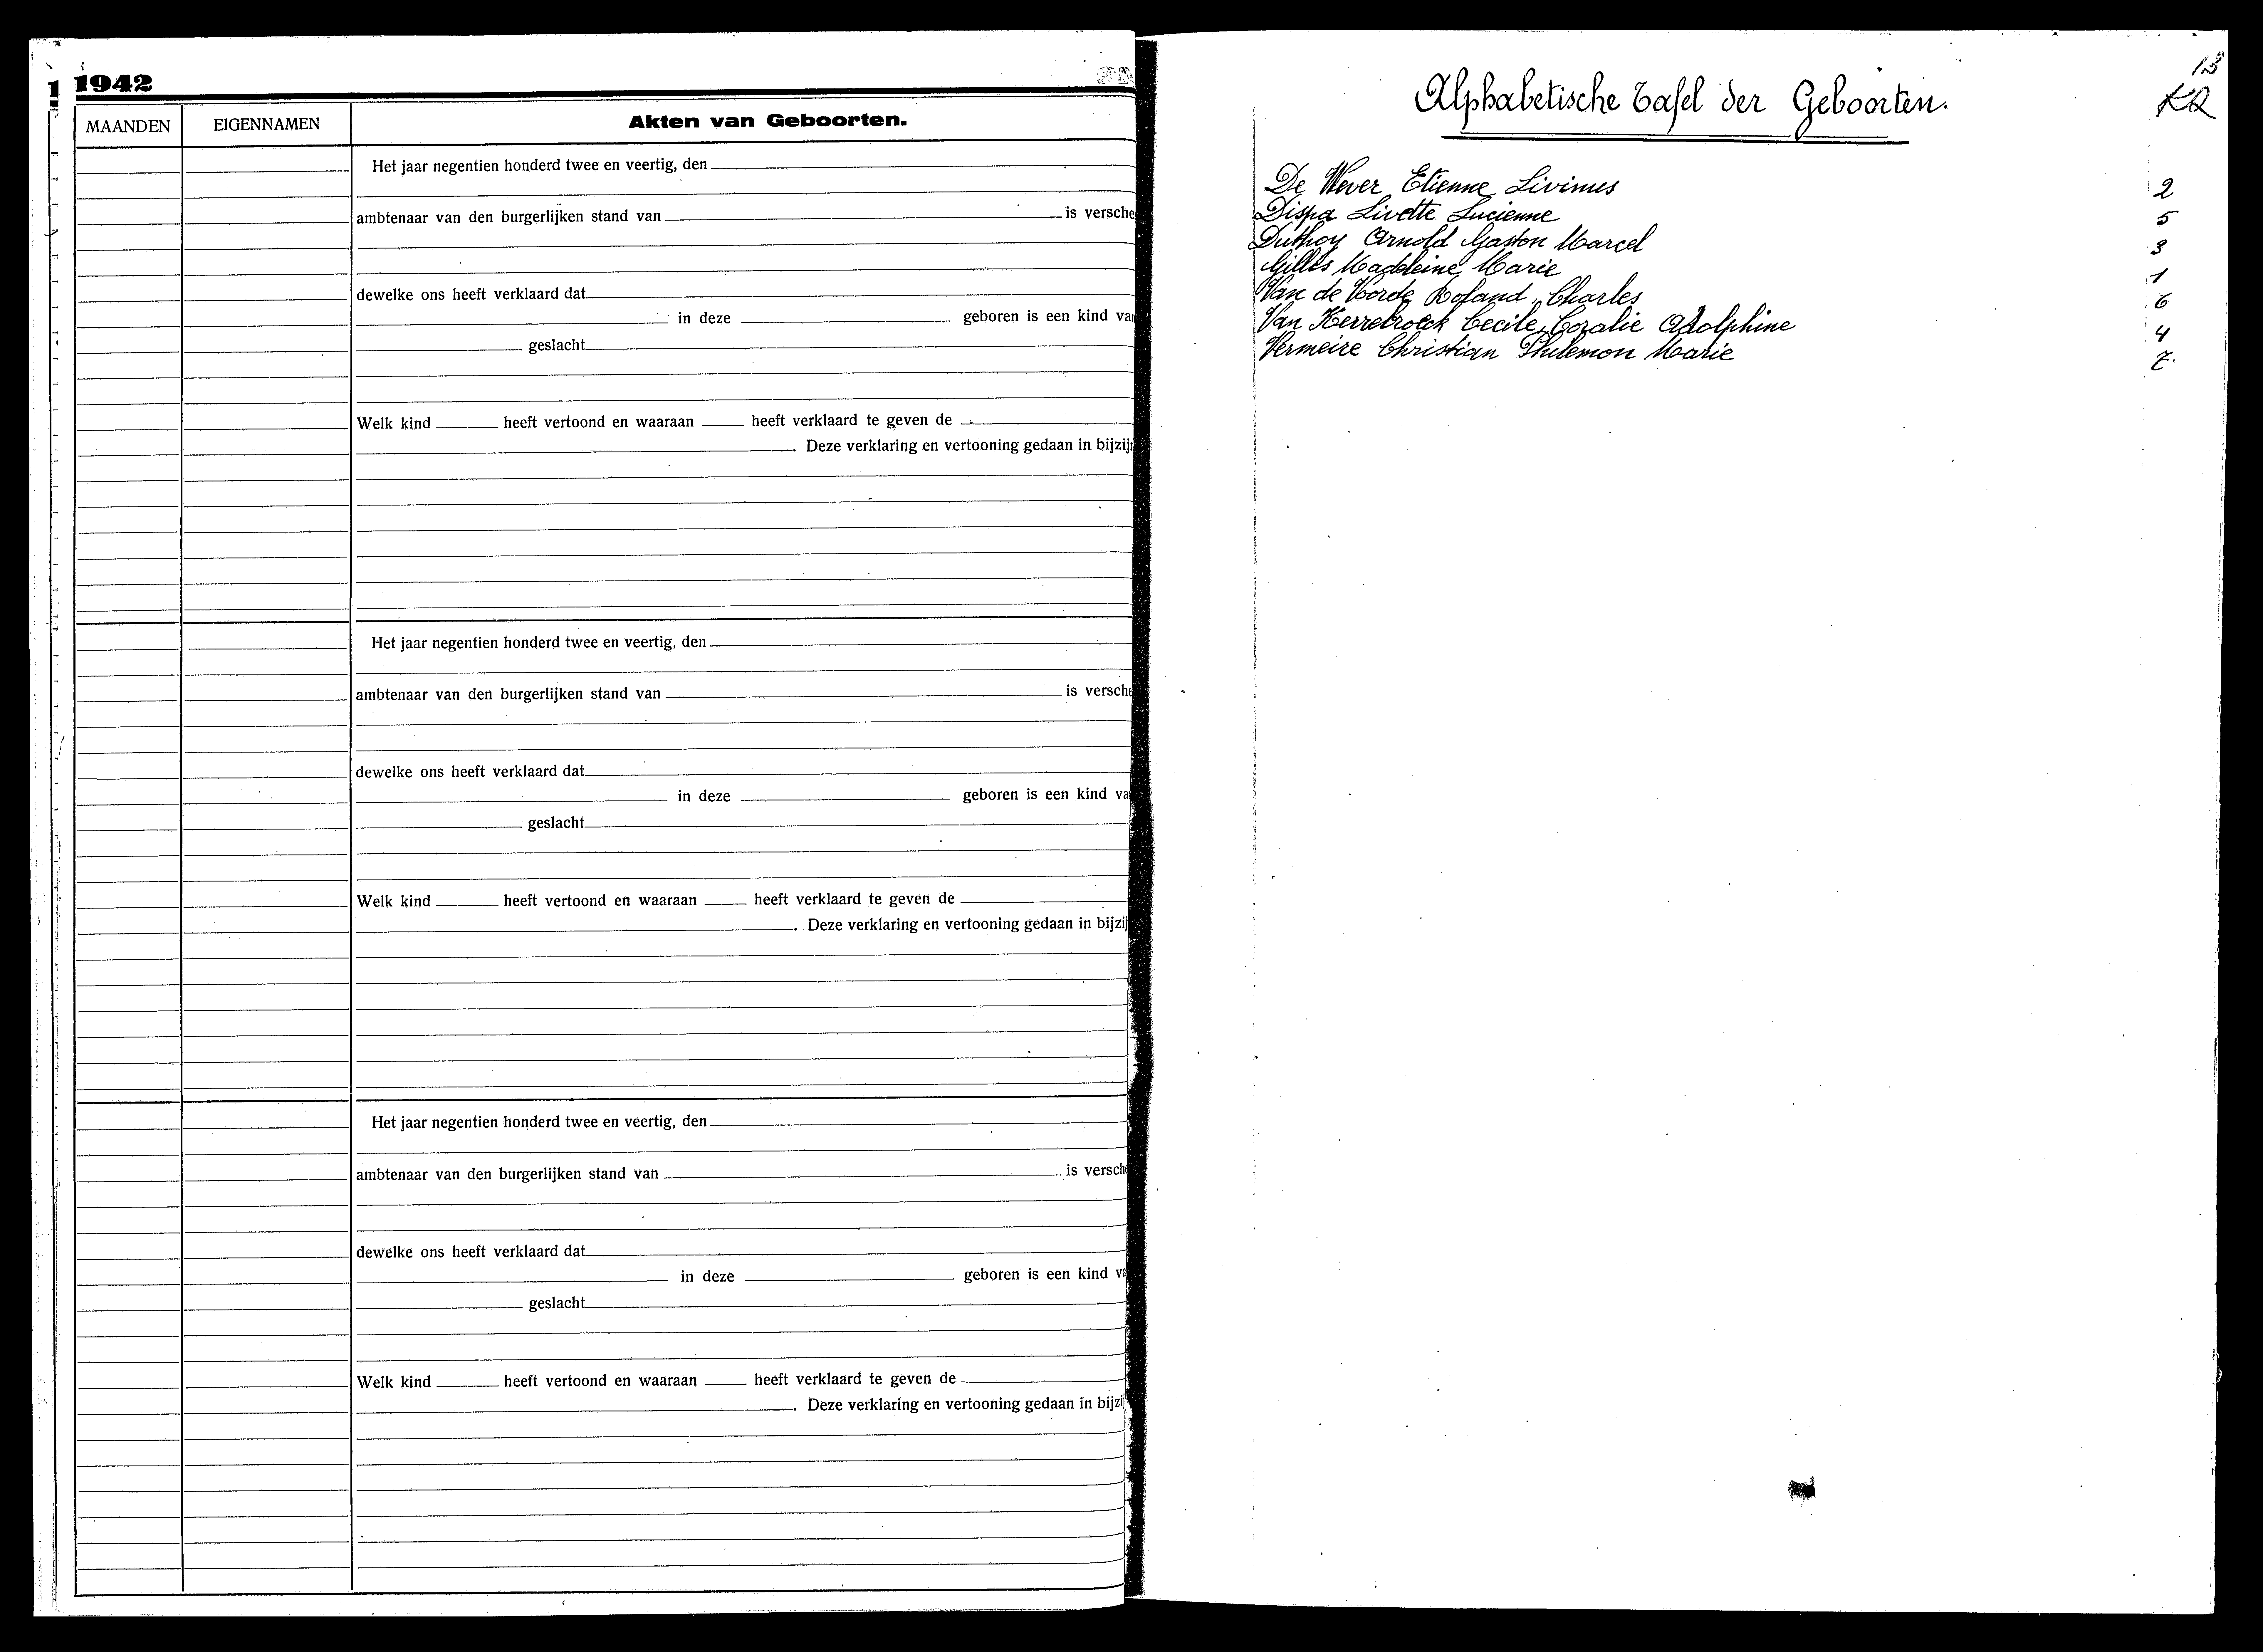 1942
MAANDEN
EIGENNAMEN
Akten van Geboorten.
Het jaar negentien honderd twee en veertig, den
ambtenaar van den burgerlijken stand van is versche
dewelke ons heeft verklaard dat
in deze geboren is een kind va
geslacht
Welk kind heeft vertoond en waaraan heeft verklaard te geven de
. Deze verklaring en vertooning gedaan in bijzij
Het jaar negentien honderd twee en veertig, den
ambtenaar van den burgerlijken stand van is versch
dewelke ons heeft verklaard dat
in deze geboren is een kind va
geslacht
Welk kind heeft vertoond en waaraan heeft verklaard te geven de
. Deze verklaring en vertooning gedaan in bijzij
Het jaar negentien honderd twee en veertig, den
ambtenaar van den burgerlijken stand van is versch
dewelke ons heeft verklaard dat
in deze geboren is een kind va
geslacht
Welk kind heeft vertoond en waaraan heeft verklaard te geven de
. Deze verklaring en vertooning gedaan in bijzij
13
Alphabetische Tafel der Geboorten.
De Wever Etienne Livinus 2
Dispa Livette Lucienne 5
Duthoy Arnold Gaston Marcel 3
Gilles Madeleine Marie 1
Van de Voorde Roland Charles 6
Van Kerrebroeck Cecile Coralie Adolphine 4
Vermeire Christian Philemon Marie 7.